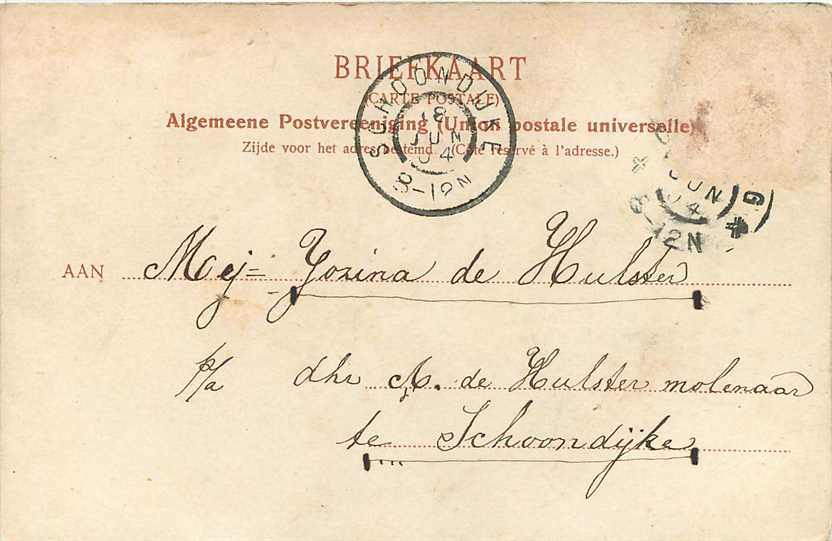 BRIEFKAART
(CARTE POSTALE)
Algemeene Postvereeniging (Union postale universelle)
Zijde voor het adres bestemd. (Côté réservé à l'adresse.)
SCHOONDIJKE
18
JUN
04
8-12N
JUN
04
12N
G
AAN Mej= Jozina de Hulster
p/a dhr A. de Hulster molenaar
te Schoondijke